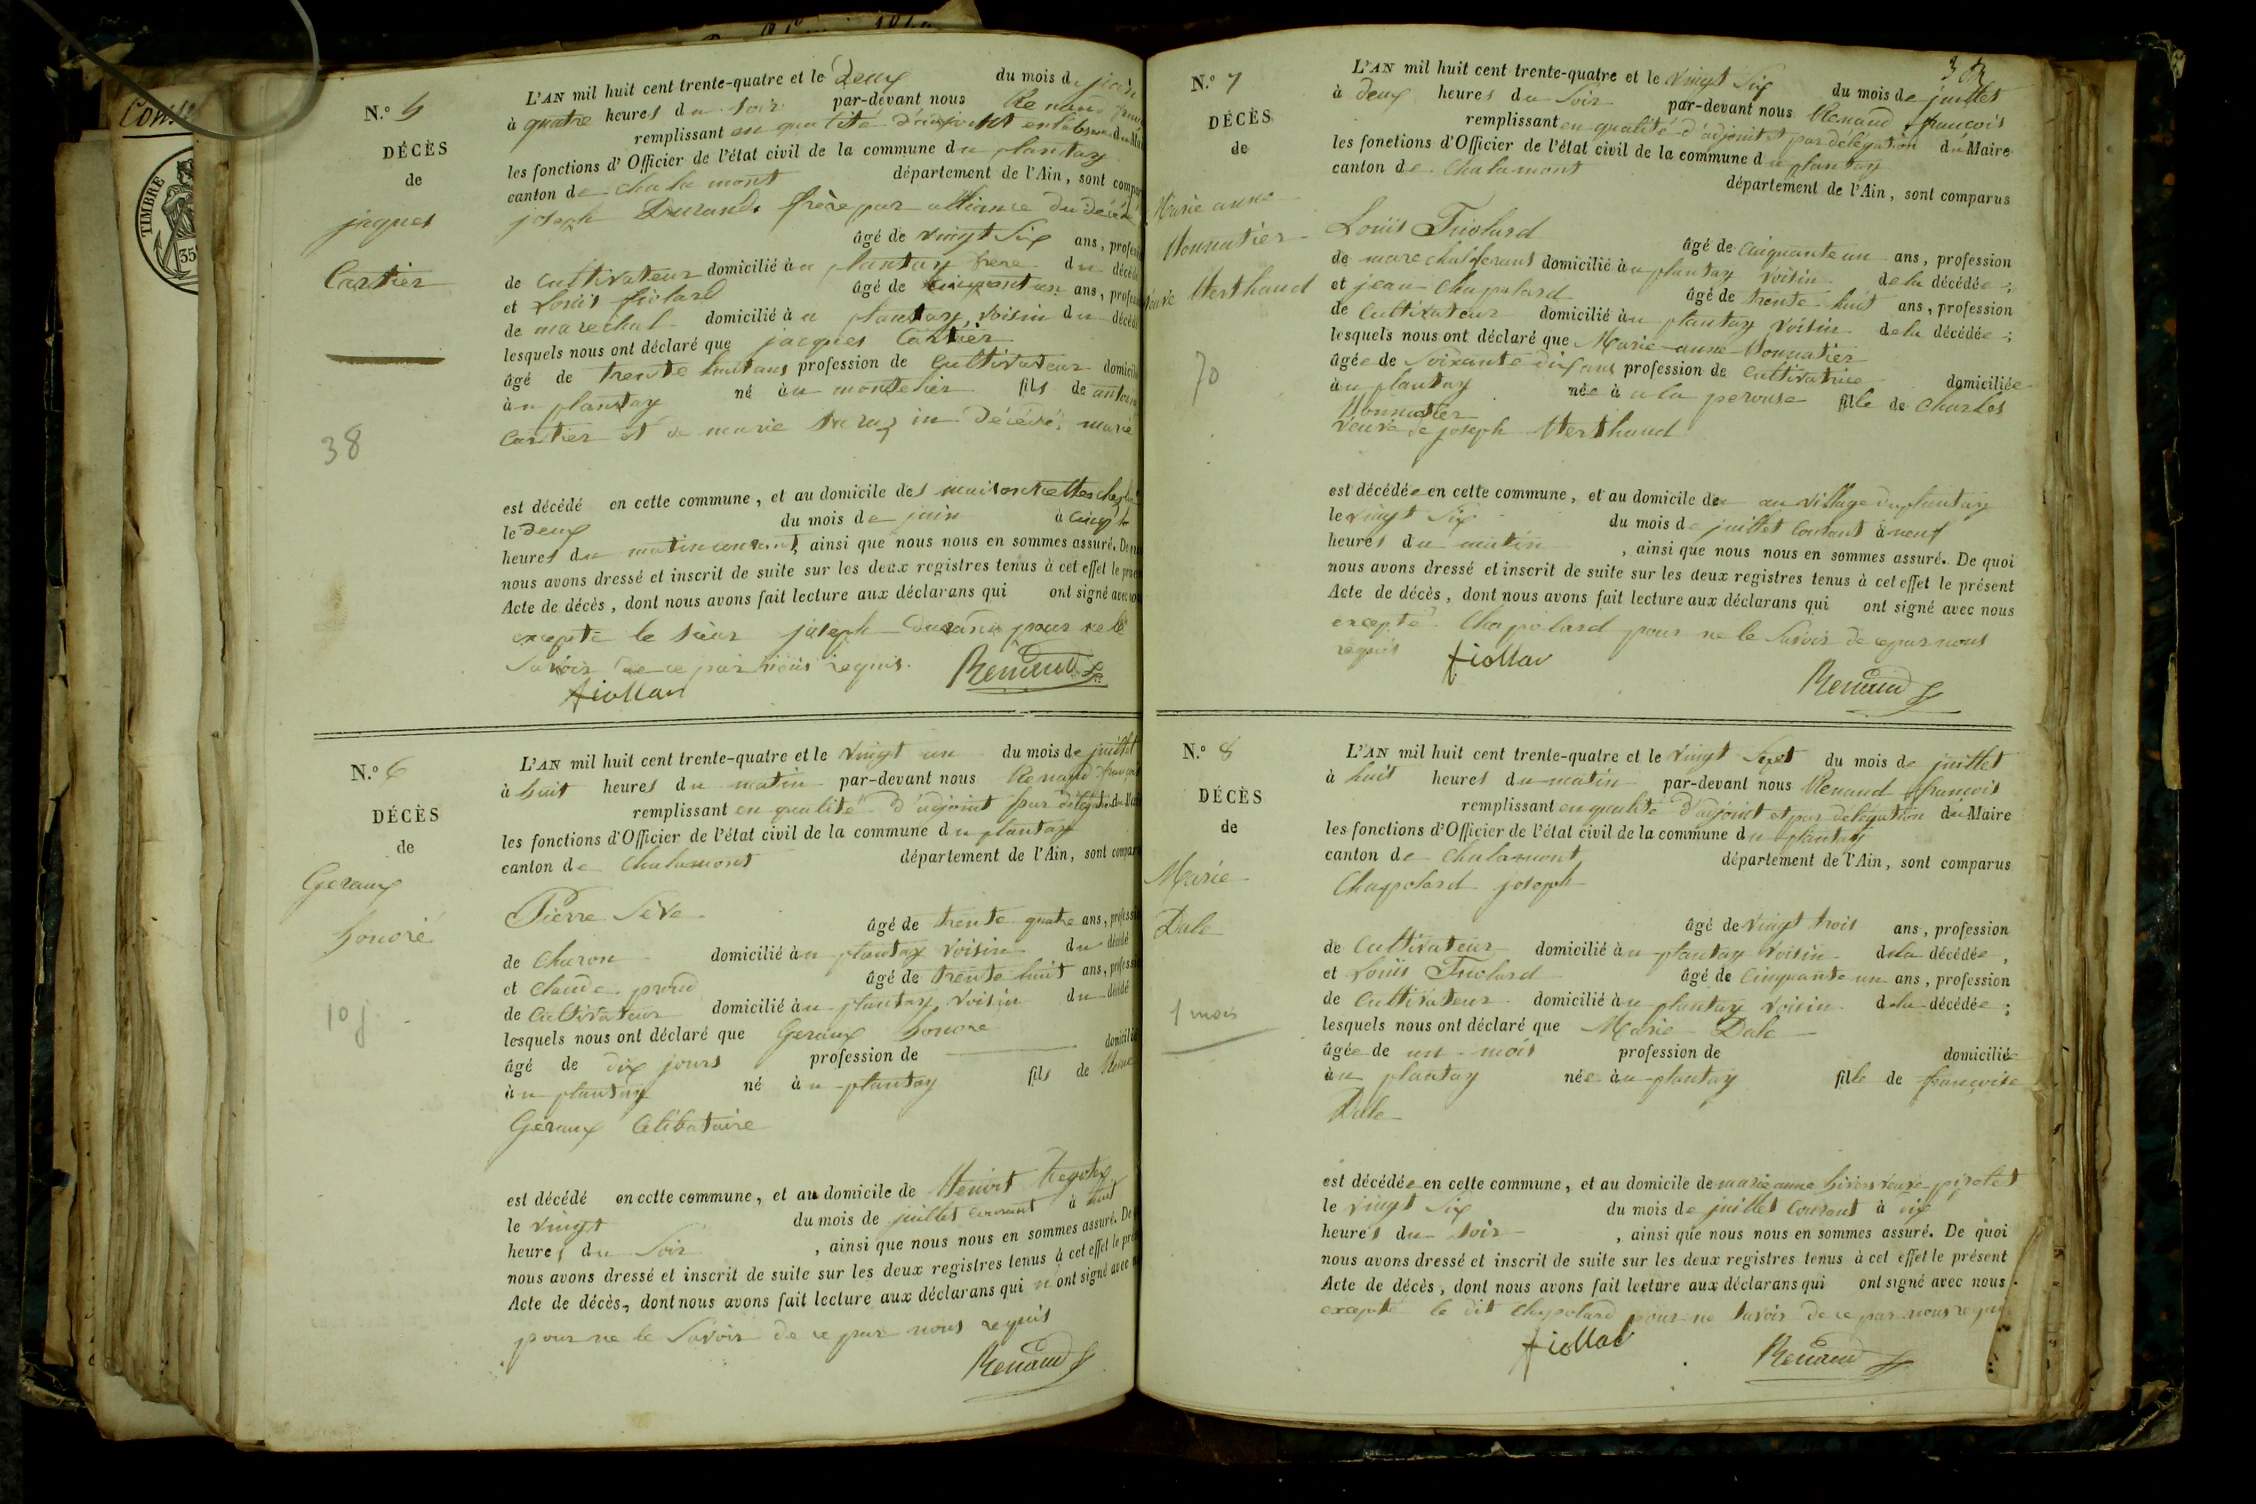 N.º 5
DÉCÈS
de
jaques
Cartier
38
L'AN mil huit cent trente-quatre et le Deux du mois de juin
à quatre heures du soir par-devant nous Renaud
remplissant en qualité d'adjoint
les fonctions d'Officier de l'état civil de la commune du plantay
canton de chalamont département de l'Ain, sont
joseph Durand frère par alliance du
âgé de vingt Six ans,
de Cultivateur domicilié au plantay frere du
et Louis fiolard âgé de cinquante un ans,
de marechal domicilié au plantay, voisin du
lesquels nous ont déclaré que jacques Cartier
âgé de trente huit ans profession de Cultivateur
au plantay né au montelier fils de
Cartier et de marie
est décédé en cette commune, et au domicile des
le deux du mois de juin à cinq
heures du matin courant, ainsi que nous nous en sommes assuré.
nous avons dressé et inscrit de suite sur les deux registres tenus à cet effet le
Acte de décès, dont nous avons fait lecture aux déclarans qui ont signé
excepté le sieur joseph Durand pour ne le
Savoir de ce par nous requis.
fiollar Renaud
N.º 6
DÉCÈS
de
Geraux
honoré
10 j
L'AN mil huit cent trente-quatre et le vingt un du mois de juillet
à huit heures du matin par-devant nous Renaud françois
remplissant en qualité d'adjoint par
les fonctions d'Officier de l'état civil de la commune du plantay
canton de Chalamont département de l'Ain, sont
Pierre Séve
âgé de trente quatre ans,
de Charon domicilié au plantay voisin du décédé
et Claude âgé de trente huit ans,
de Cultivateur domicilié au plantay, voisin du décédé
lesquels nous ont déclaré que Geraux honoré
âgé de dix jours profession de domicilié
au plantay né au plantay fils de
Geraux Célibataire
est décédé en cette commune, et au domicile de Benoit
le vingt du mois de juillet courant à huit
heures du Soir, ainsi que nous nous en sommes assuré.
nous avons dressé et inscrit de suite sur les deux registres tenus à cet effet le
Acte de décès, dont nous avons fait lecture aux déclarans qui n'ont signé avec
pour ne le Savoir de ce par nous requis
Renaud
N.º 7
DÉCÈS
de
Marie anne
Monnatier
veuve Berthaud
70
L'AN mil huit cent trente-quatre et le vingt Six du mois de juillet
à deux heures du Soir par-devant nous Renaud françois
remplissant en qualité d'adjoint et par délégation du Maire
les fonctions d'Officier de l'état civil de la commune du plantay
canton de Chalamont département de l'Ain, sont comparus
Louis Fiolard
âgé de Cinquante un ans, profession
de marechal ferant domicilié au plantay voisin de la décédée;
et jean Chapolard âgé de trente huit ans, profession
de Cultivateur domicilié au plantay voisin de la décédée;
lesquels nous ont déclaré que Marie anne Monnatier
âgée de Soixante dix ans profession de Cultivatrice domiciliée
au plantay née à la perouse fille de Charles
Monnatier
veuve de joseph Berthaud
est décédée en cette commune, et au domicile de au village du plantay
le vingt Six du mois de juillet Courant à neuf
heures du matin, ainsi que nous nous en sommes assuré. De quoi
nous avons dressé et inscrit de suite sur les deux registres tenus à cet effet le présent
Acte de décès, dont nous avons fait lecture aux déclarans qui ont signé avec nous
excepté Chapolard pour ne le Savoir de ce par nous
requis fiollar
Renaud
N.º 8
DÉCÈS
de
Marie
Dale
1 mois
L'AN mil huit cent trente-quatre et le vingt Sept du mois de juillet
à huit heures du matin par-devant nous Renaud françois
remplissant en qualité d'adjoint et par délégation du Maire
les fonctions d'Officier de l'état civil de la commune du plantay
canton de Chalamont département de l'Ain, sont comparus
Chapolard joseph
âgé de vingt trois ans, profession
de Cultivateur domicilié au plantay voisin de la décédée,
et Louis Fiolard âgé de Cinquante un ans, profession
de Cultivateur domicilié au plantay voisin de la décédée;
lesquels nous ont déclaré que Marie Dale
âgée de un mois profession de domiciliée
au plantay née au plantay fille de françoise
Dale
est décédée en cette commune, et au domicile de marie anne veuve
le vingt Six du mois de juillet Courant à dix
heures du soir, ainsi que nous nous en sommes assuré. De quoi
nous avons dressé et inscrit de suite sur les deux registres tenus à cet effet le présent
Acte de décès, dont nous avons fait lecture aux déclarans qui ont signé avec nous
excepté le dit Chapolard pour ne savoir de ce par nous requis
fiollar Renaud
TIMBRE
35